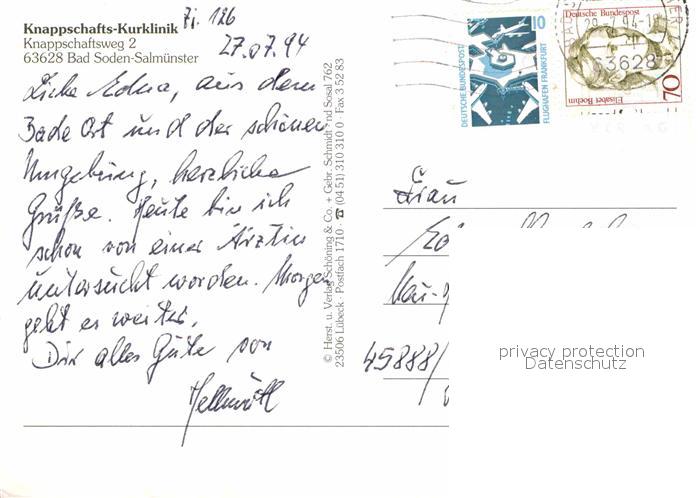 Zi. 126
Knappschafts-Kurklinik
Knappschaftsweg 2
63628 Bad Soden-Salmünster
27.07.94
Liebe Edna, aus dem
Bade Ort und der schönen
Umgebung, herzliche
Grüße. Heute bin ich
schon von einer Ärztin
untersucht worden. Morgen
geht es weiter.
Dir alles Gute von
Hellmuth
© Herst. u. Verlag Schöning & Co. + Gebr. Schmidt · nd Sosal 762
23506 Lübeck · Postfach 1710 · ☎ (04 51) 310 310 0 · Fax 3 52 83
10
DEUTSCHE BUNDESPOST
FLUGHAFEN FRANKFURT
Deutsche Bundespost
70
Elisabet Boehm
28-7.94-18
63628
Frau
45888/
privacy protection
Datenschutz